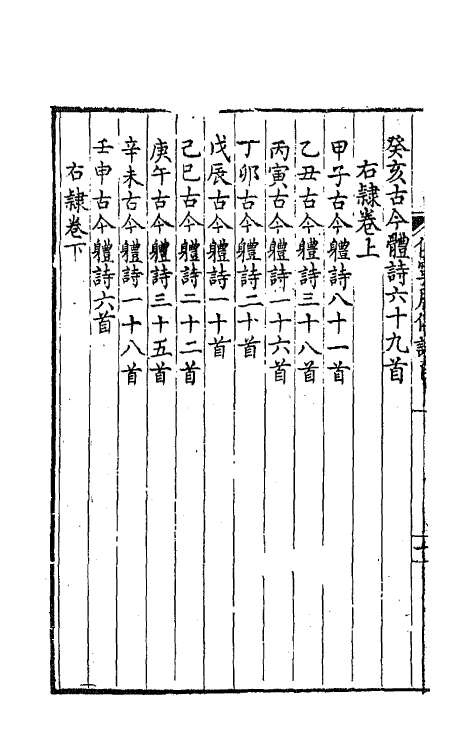 癸亥古今體詩六十九首
右隷卷上
甲子古今軆詩八十一首
乙丑古今軆詩三十八首
丙寅古今軆詩一十六首
丁卯古今軆詩二十首
戊辰古今軆詩一十首
己巳古今軆詩二十二首
庚午古今軆詩三十五首
辛未古今軆詩一十八首
壬申古今軆詩六首
右隷卷下